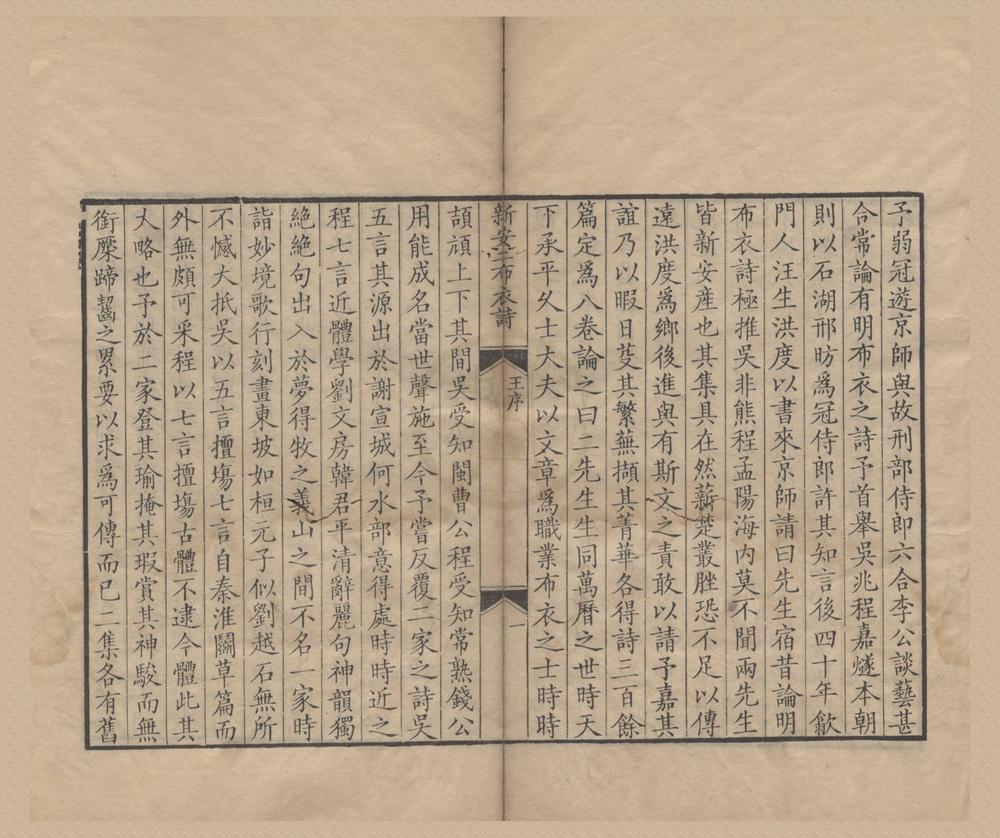 予弱冠遊京師與故刑部侍郎六合李公談藝甚
合常論有明布衣之詩予首舉吳兆程嘉燧本朝
則以石湖邢昉為冠侍郎許其知言後四十年歙
門人汪生洪度以書來京師請曰先生宿昔論明
布衣詩極推吳非熊程孟陽海內莫不聞兩先生
皆新安產也其集具在然薪楚叢脞恐不足以傳
遠洪度爲鄉後進與有斯文之責敢以請予嘉其
誼乃以暇日芟其繁蕪擷其菁華各得詩三百餘
篇定爲八卷論之曰二先生生同萬曆之世時天
下承平久士大夫以文章爲職業布衣之士時時
新安二布衣詩 王序 一
頡頏上下其間吳受知閩曹公程受知常熟錢公
用能成名當世聲施至今予嘗反覆二家之詩吳
五言其源出於謝宣城何水部意得處時時近之
程七言近體學劉文房韓君平清辭麗句神韻獨
絕絕句出入於夢得牧之義山之間不名一家時
詣妙境歌行刻畫東坡如桓元子似劉越石無所
不憾大抵吳以五言擅塲七言自秦淮鬭草篇而
外無頗可采程以七言擅塲古體不逮今體此其
大略也予於二家登其瑜掩其瑕賞其神駿而無
銜橜蹄齧之累要以求爲可傳而已二集各有舊